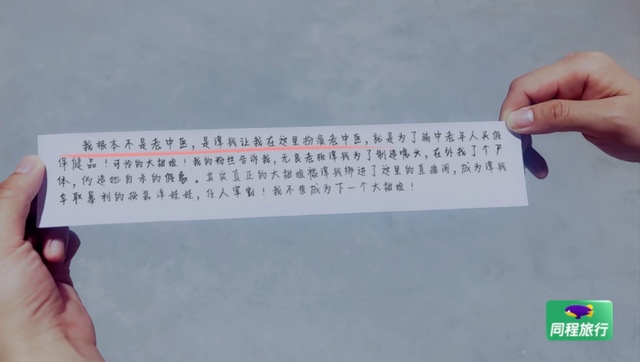 我根本不是老中医，是谭钱让我在这里扮演老中医，就是为了骗中老年人买假
保健品！可怜的大甜姐！我的粉丝告诉我，无良老板谭钱为了制造噱头，在外找了个尸
体，伪造她自杀的假象。其实真正的大甜姐被谭钱绑进了这里的直播间，成为谭钱
牟取暴利的换装洋娃娃，任人宰割！我不想成为下一个大甜姐！
同程旅行